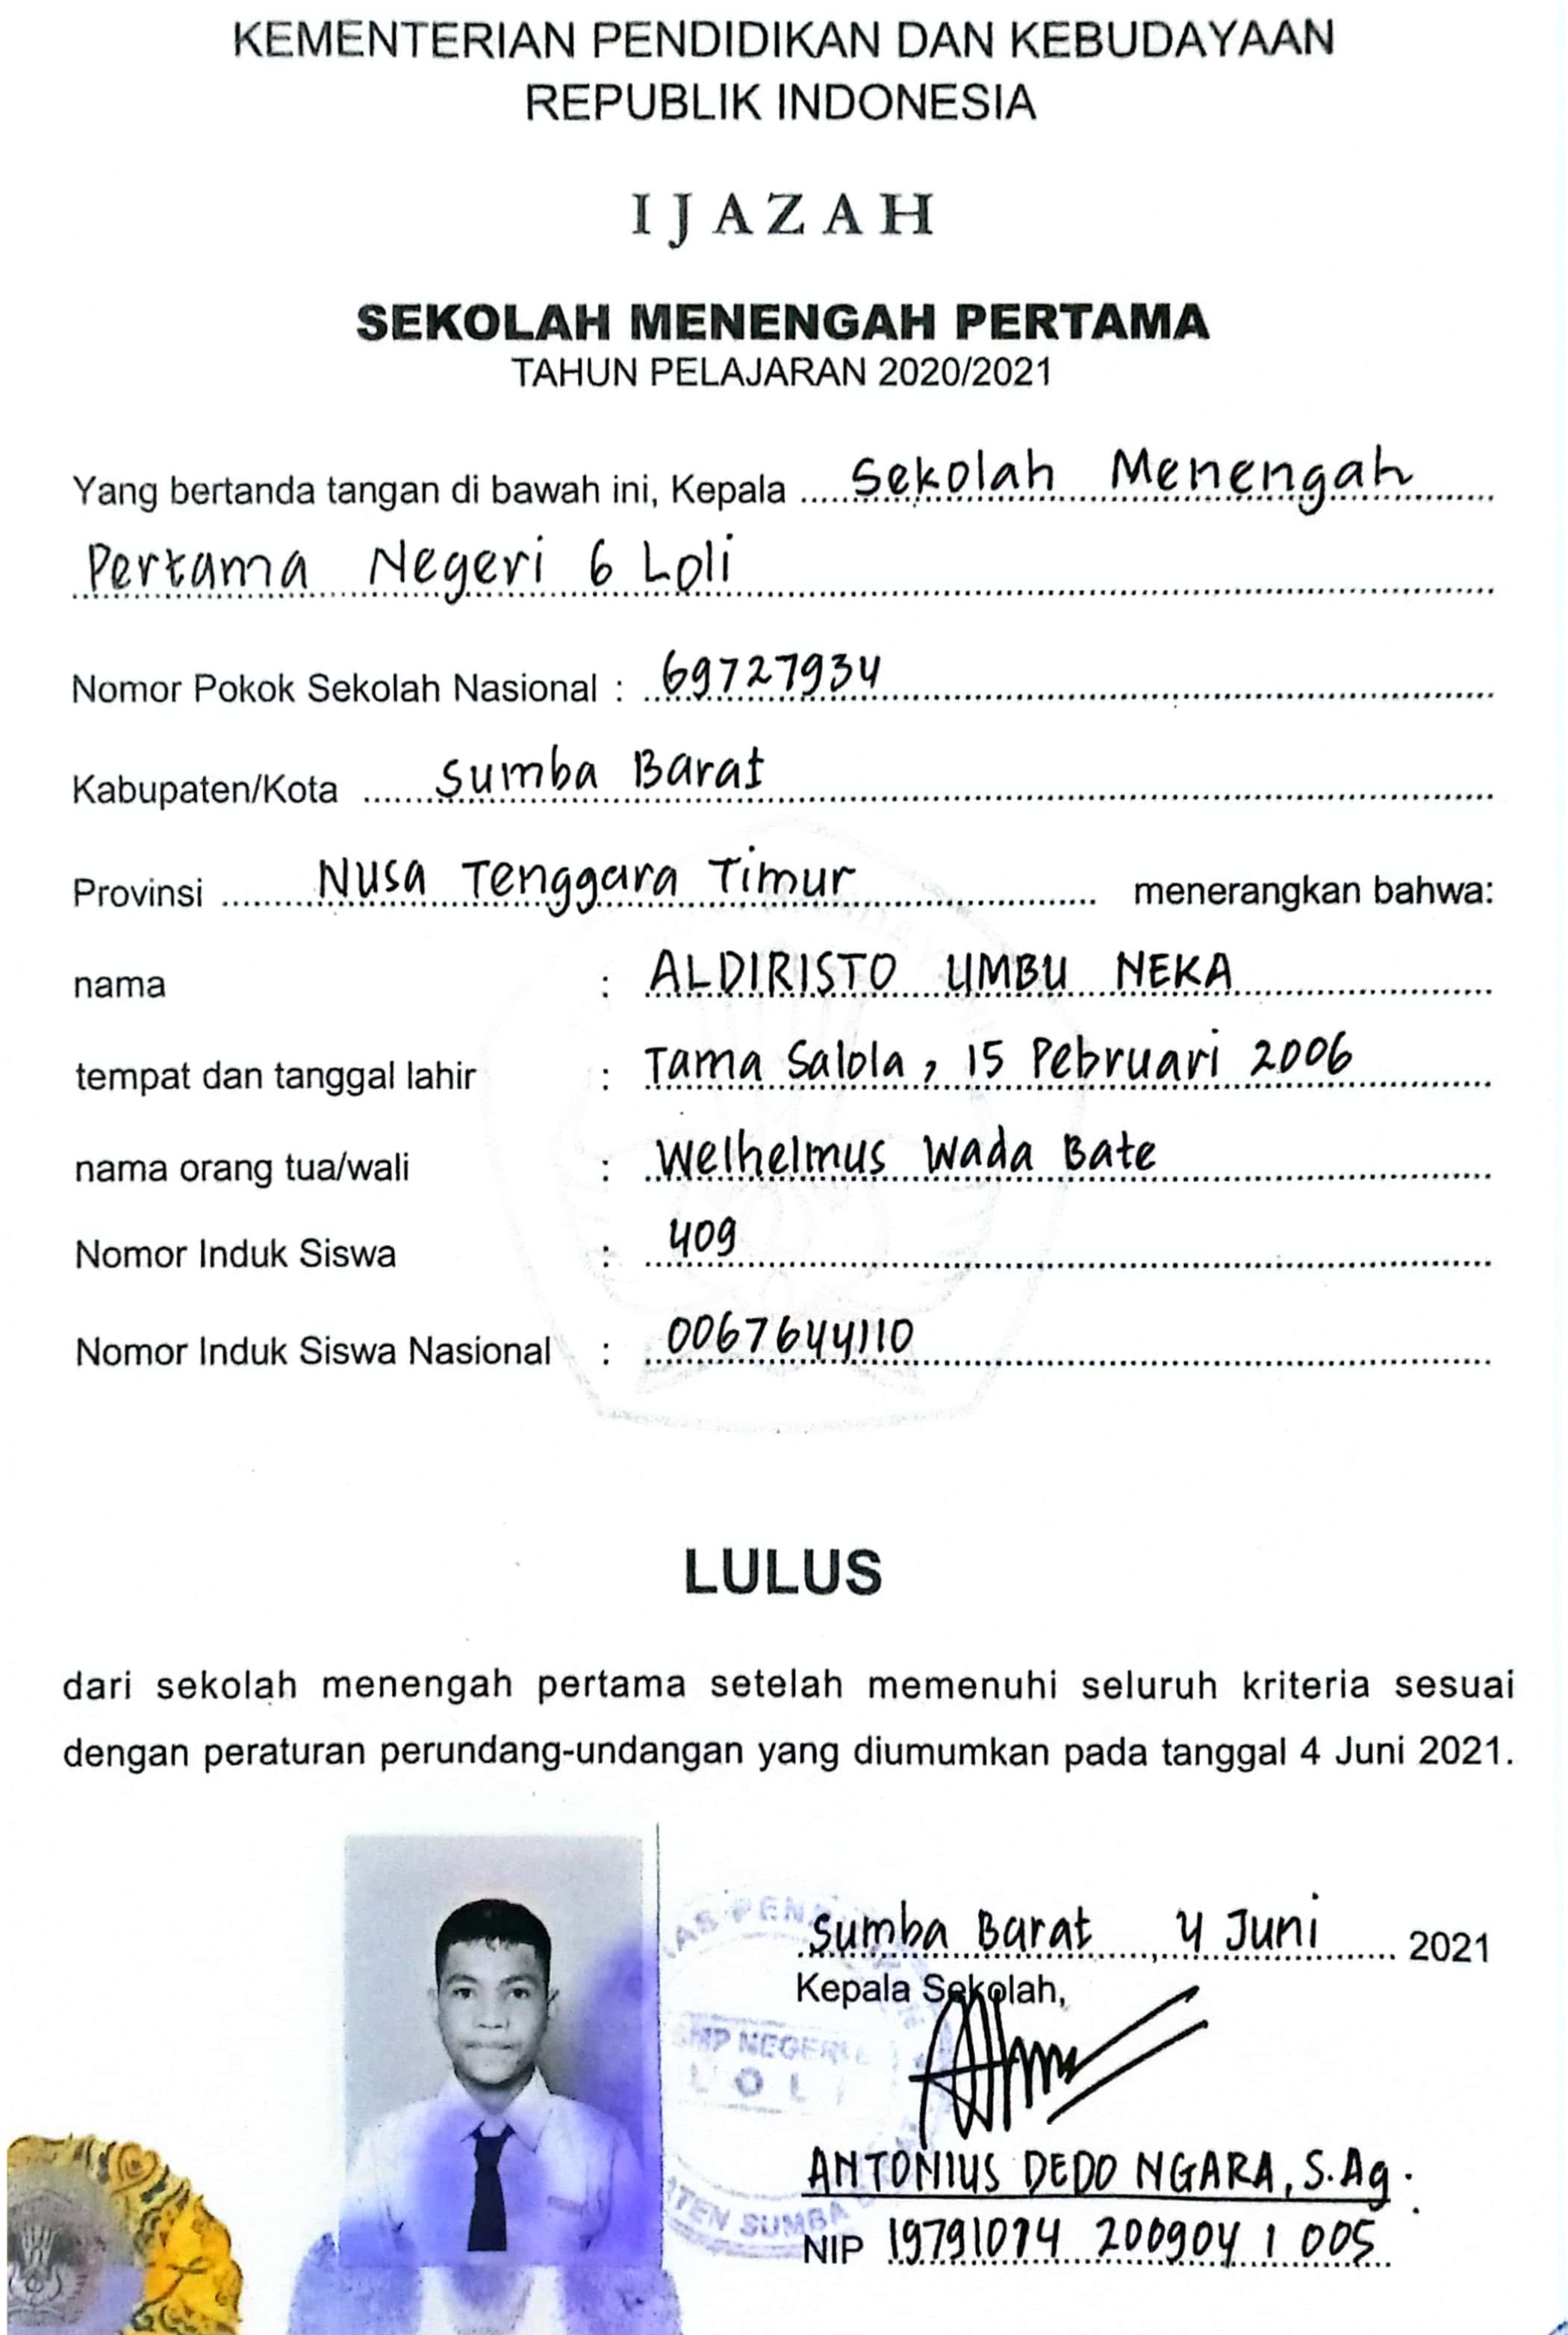 KEMENTERIAN PENDIDIKAN DAN KEBUDAYAAN
REPUBLIK INDONESIA
IJAZAH
SEKOLAH MENENGAH PERTAMA
TAHUN PELAJARAN 2020/2021
Yang bertanda tangan di bawah ini, Kepala Sekolah Menengah
Pertama Negeri 6 Loli
Nomor Pokok Sekolah Nasional : 69727934
Kabupaten/Kota Sumba Barat
Provinsi Nusa Tenggara Timur menerangkan bahwa:
nama : ALDIRISTO UMBU NEKA
tempat dan tanggal lahir : Tama Salola, 15 Pebruari 2006
nama orang tua/wali : Welhelmus Wada Bate
Nomor Induk Siswa : 409
Nomor Induk Siswa Nasional : 0067644110
LULUS
dari sekolah menengah pertama setelah memenuhi seluruh kriteria sesuai
dengan peraturan perundang-undangan yang diumumkan pada tanggal 4 Juni 2021.
Sumba Barat, 4 Juni 2021
Kepala Sekolah,
SMP NEGERI
LOLI
SUMBA
ANTONIUS DEDO NGARA, S.Ag.
NIP 19791014 200904 1 005